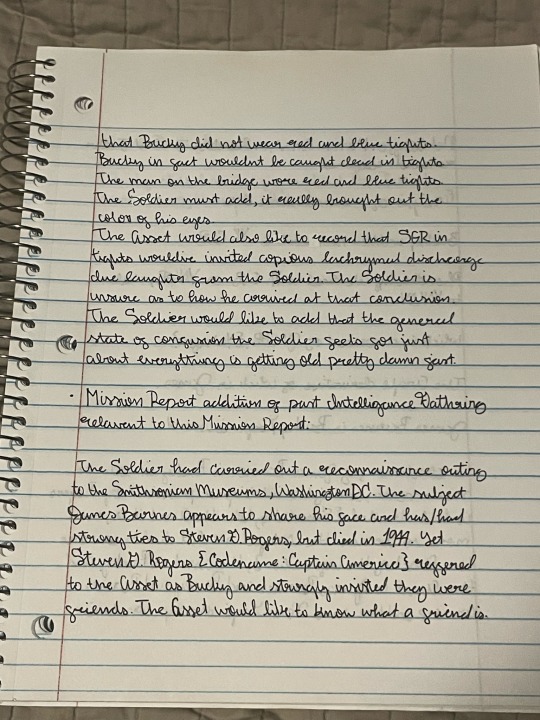 that Bucky did not wear red and blue tights.
Bucky in fact wouldnt be caught dead in tights
The man on the bridge wore red and blue tights.
The Soldier must add, it really brought out the
color of his eyes.
The Asset would also like to record that SGR in
tights wouldve invited copious lachrymal discharge
due laughter from the Soldier. The Soldier is
unsure as to how he arrived at that conclusion.
The Soldier would like to add that the general
state of confusion the Soldier feels for just
about everything is getting old pretty damn fast.
• Mission Report addition of past Intelligence Gathring
relavent to this Mission Report:
The Soldier had carried out a reconnaissance outing
to the Smithsonian Museums, Washington DC. The subject
James Barnes appears to share his face and has/had
strong ties to Steven G. Rogers, but died in 1944. Yet
Steven G. Rogers {Codename: Captain America} reffered
to the Asset as Bucky and strongly insisted they were
friends. The Asset would like to know what a friend is.